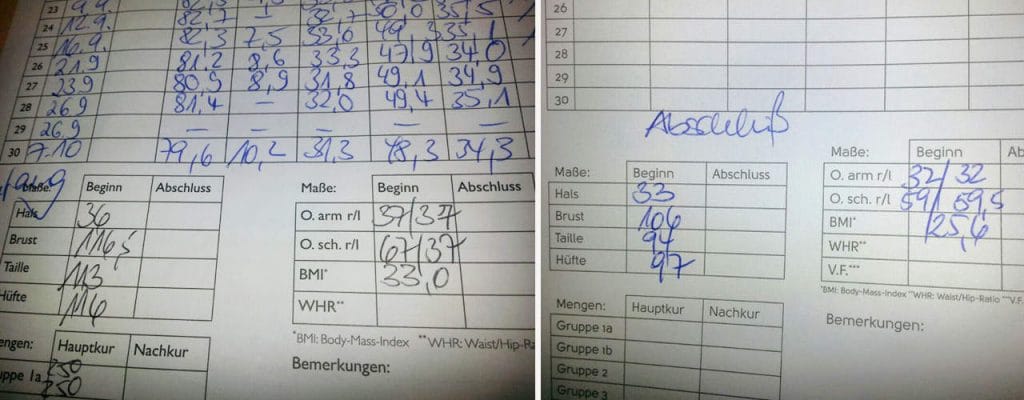 23 9.9.
24 12.9. 82,7 — 32,7
25 16.9. 82,3 7,5 33,6
26 21.9 81,2 8,6 33,3 47,9 34,0
27 23.9 80,9 8,9 31,8 49,1 34,9
28 26.9 81,4 — 32,0 49,4 35,1
29 26.9 — — — — —
30 7.10 79,6 10,2 31,3 48,3 34,3
Maße: Beginn Abschluss
Hals 36
Brust 116,5
Taille 113
Hüfte 116
Maße: Beginn Abschluss
O. arm r/l 37/37
O. sch. r/l 67/37
BMI* 33,0
WHR**
*BMI: Body-Mass-Index **WHR: Waist/Hip-Ra
Bemerkungen:
engen: Hauptkur Nachkur
uppe 1a 250
250
26
27
28
29
30
Abschluß
Maße: Beginn Abschluss
Hals 33
Brust 106
Taille 94
Hüfte 97
Maße: Beginn Ab
O. arm r/l 32/32
O. sch. r/l 59/59,5
BMI* 25,6
WHR**
V.F.***
*BMI: Body-Mass-Index **WHR: Waist/Hip-Ratio ***V.F.
Bemerkungen:
Mengen: Hauptkur Nachkur
Gruppe 1a
Gruppe 1b
Gruppe 2
Gruppe 3